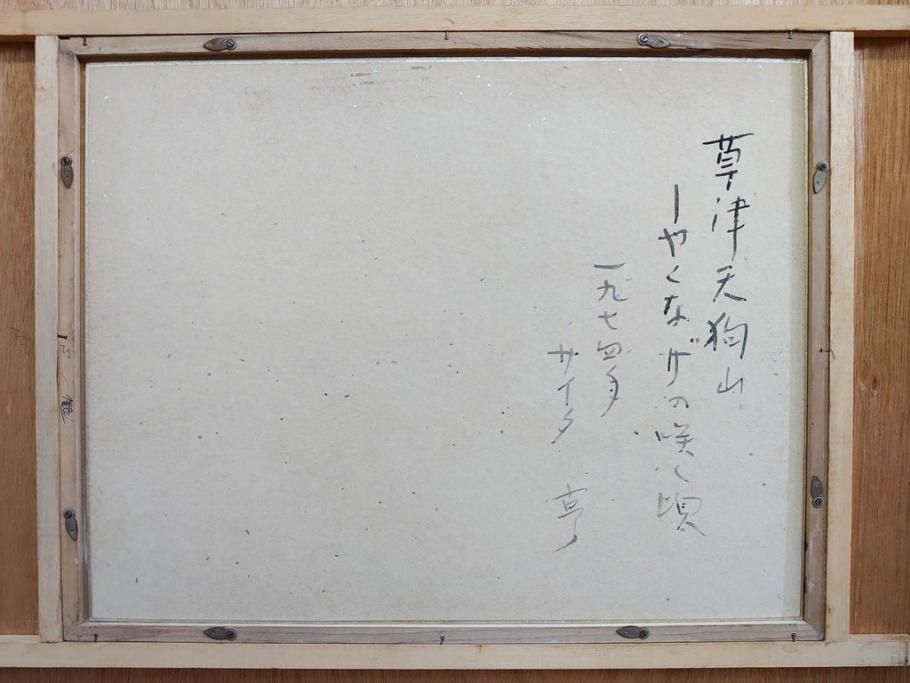 草津天狗山
しやくなげの咲く頃
一九七四年
サイタ 亨